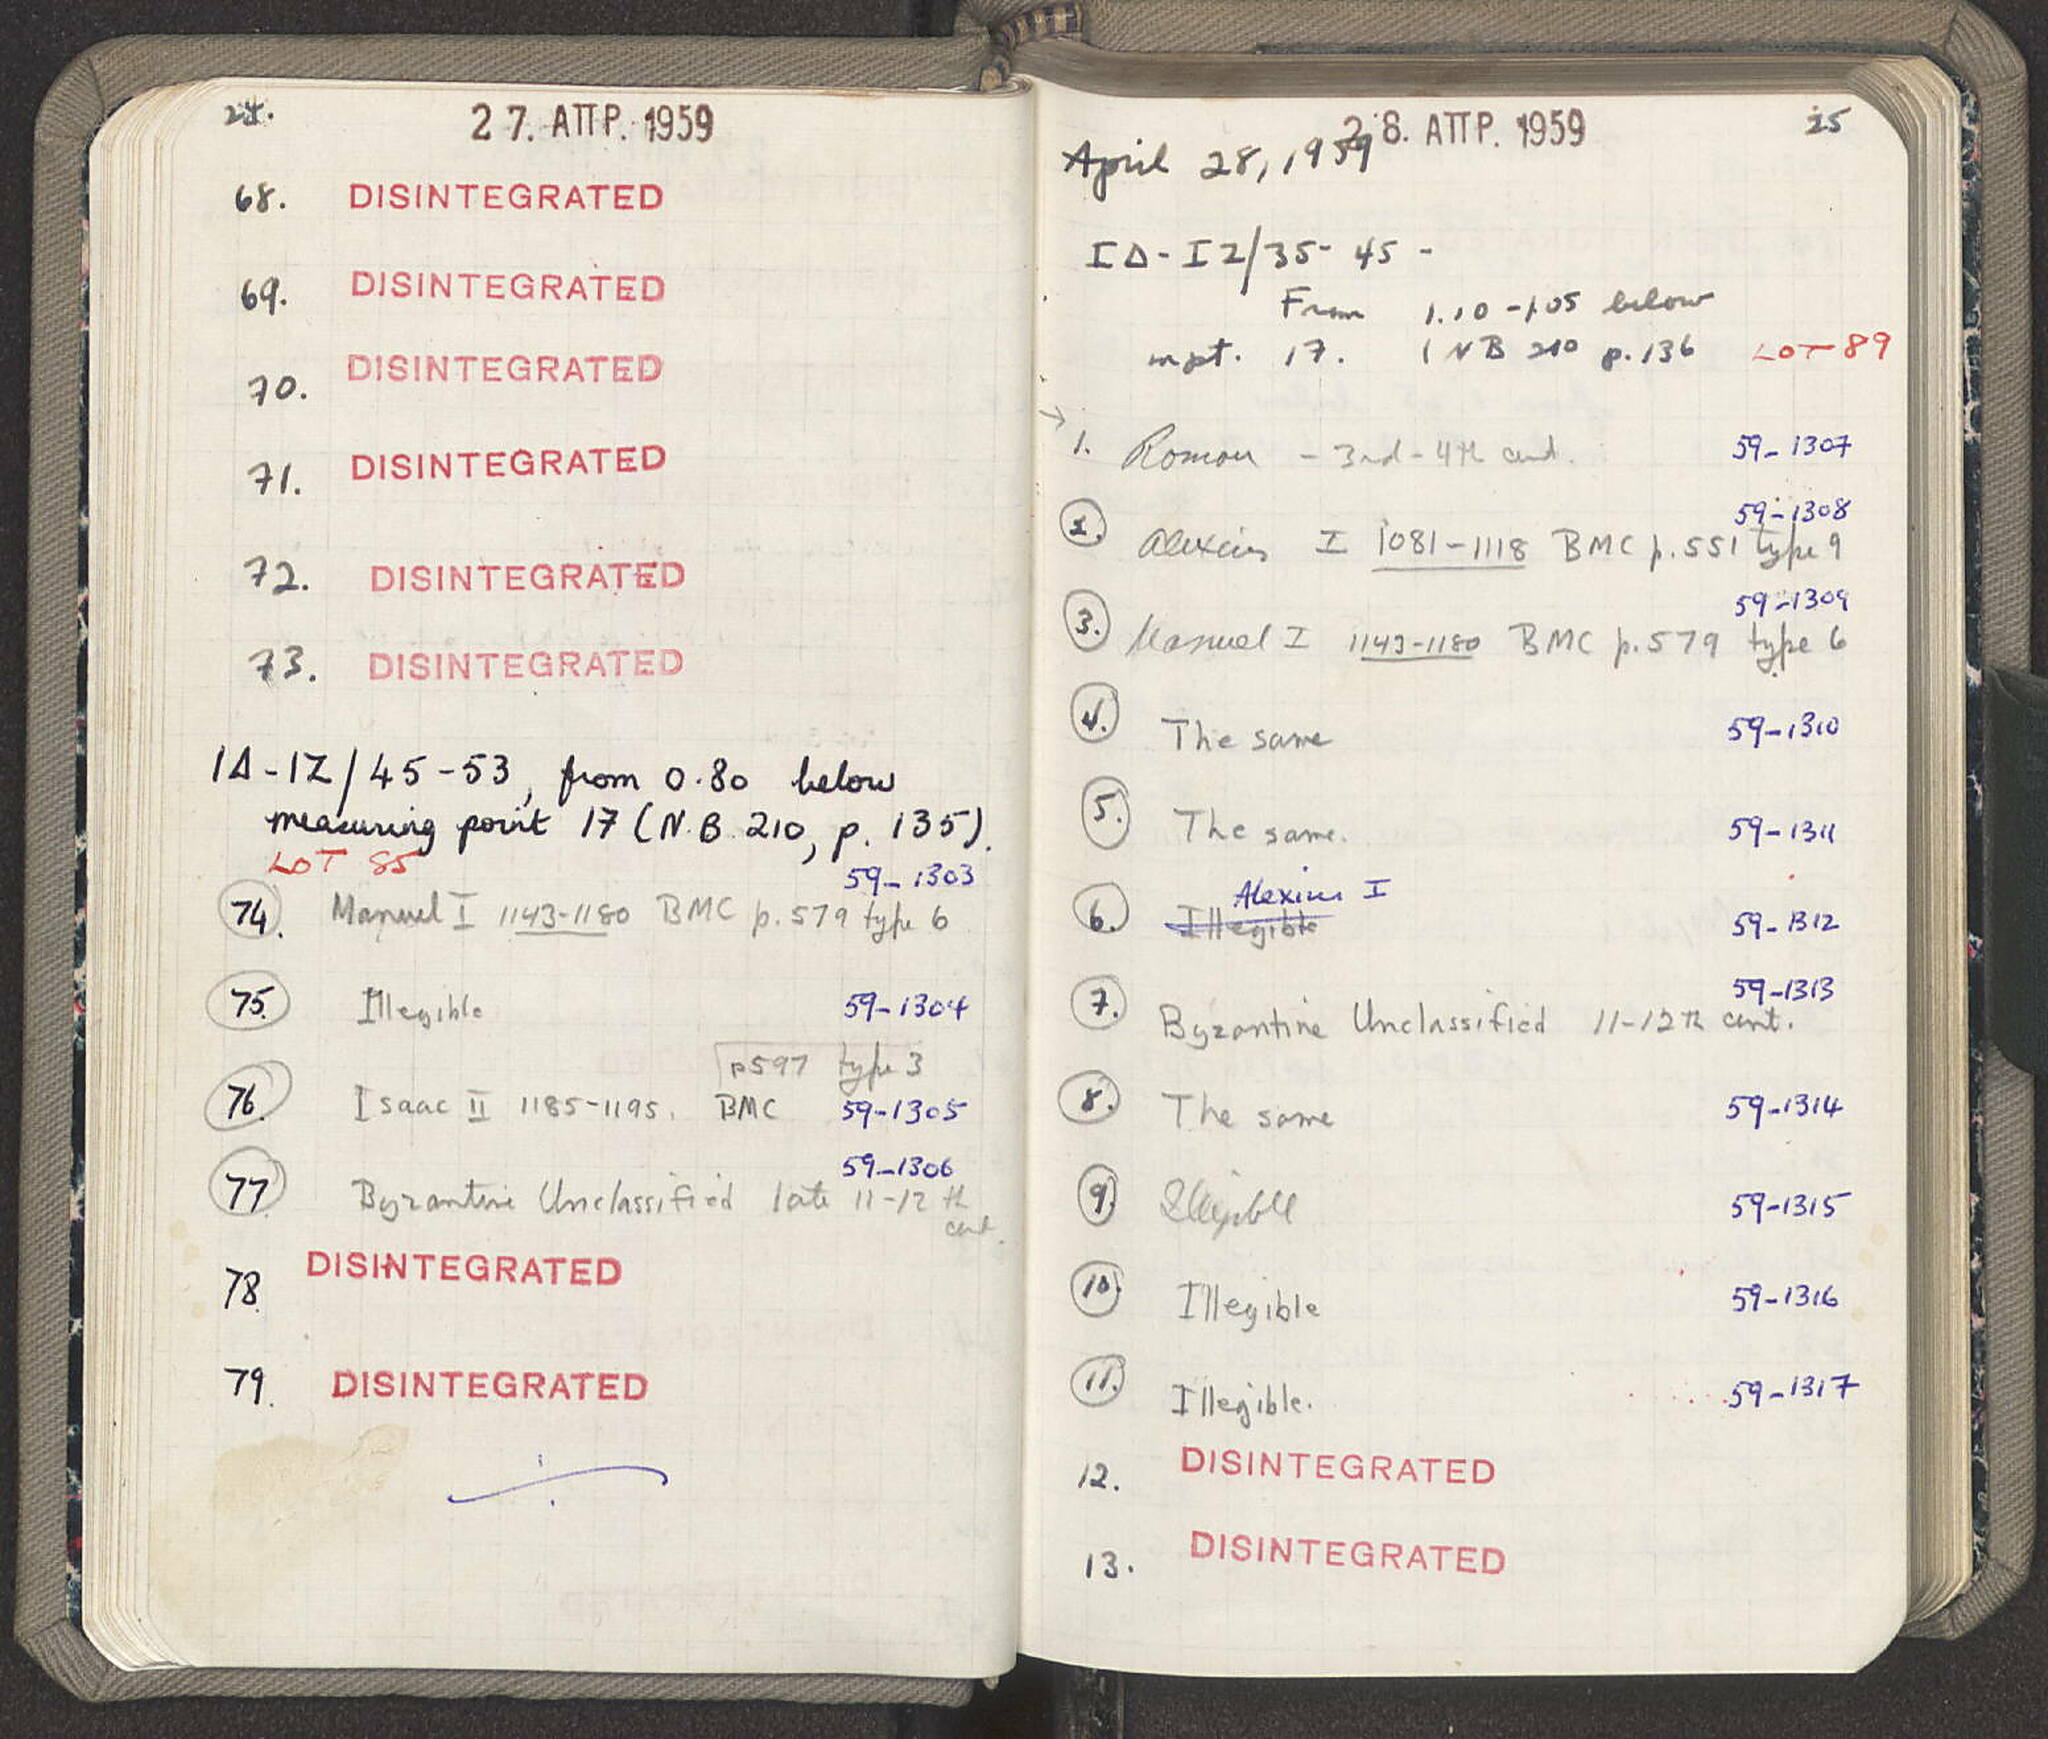 24.
27. ΑΠΡ. 1959
68. DISINTEGRATED
69. DISINTEGRATED
70. DISINTEGRATED
71. DISINTEGRATED
72. DISINTEGRATED
73. DISINTEGRATED
ΙΔ-ΙΖ/45-53, from 0.80 below
measuring point 17 (N.B. 210, p. 135).
LOT 85
59-1303
74. Manuel I 1143-1180 BMC p.579 type 6
75. Illegible 59-1304
p597 type 3
76. Isaac II 1185-1195. BMC 59-1305
59-1306
77. Byzantine Unclassified late 11-12 th
cent.
78. DISINTEGRATED
79. DISINTEGRATED
28. ΑΠΡ. 1959
25
April 28, 1959
ΙΔ-ΙΖ/35-45-
From 1.10-1.05 below
mpt. 17. (NB 210 p.136 LOT 89
1. Roman - 3rd-4th cent. 59-1307
59-1308
2. Alexius I 1081-1118 BMC p.551 type 9
59-1309
3. Manuel I 1143-1180 BMC p.579 type 6
4. The same 59-1310
5. The same. 59-1311
Alexius I
6. Illegible 59-1312
59-1313
7. Byzantine Unclassified 11-12th cent.
8. The same 59-1314
9. Illegible 59-1315
10. Illegible 59-1316
11. Illegible. 59-1317
12. DISINTEGRATED
13. DISINTEGRATED